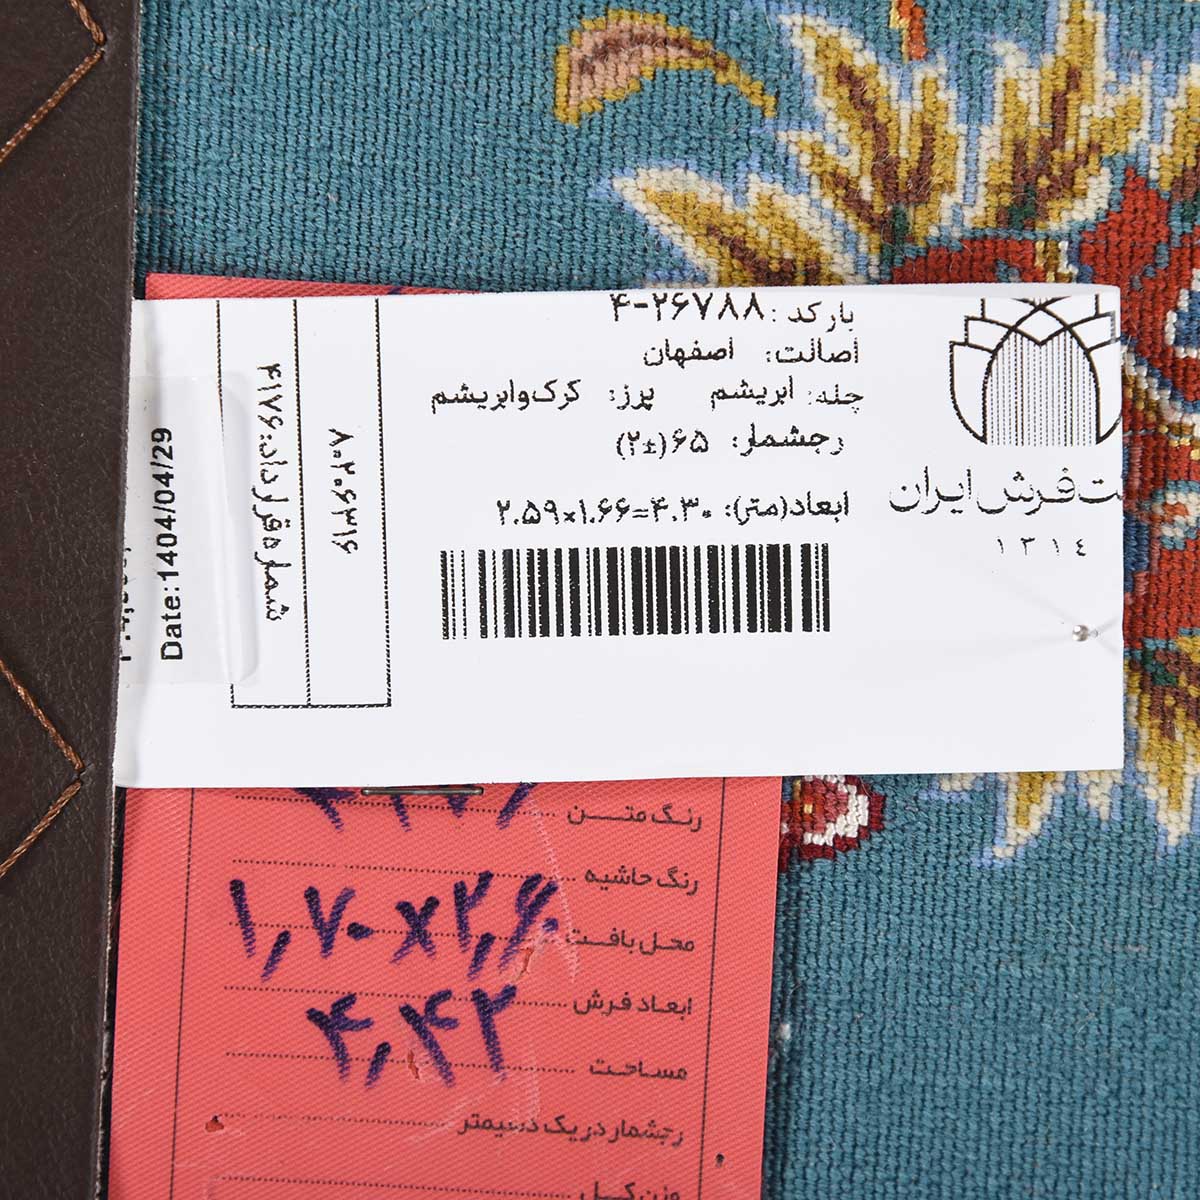 بارکد: ۴-۲۶۷۸۸
اصالت: اصفهان
چله: ابریشم پرز: کرک‌وابریشم
رجشمار: ۶۵(±۲)
ابعاد(متر): ۲.۵۹×۱.۶۶=۴.۳۰
فرش ایران
۱۳۱۴
شماره قرارداد: ۴۱۷۶
۸۰۲۰۶۳۱۶
Date:1404/04/29
رنگ متن
رنگ حاشیه
محل بافت
۱,۷۰×۲,۶۰
ابعاد فرش
۴,۴۲
مساحت
رجشمار در یک دسیمتر
وزن کل